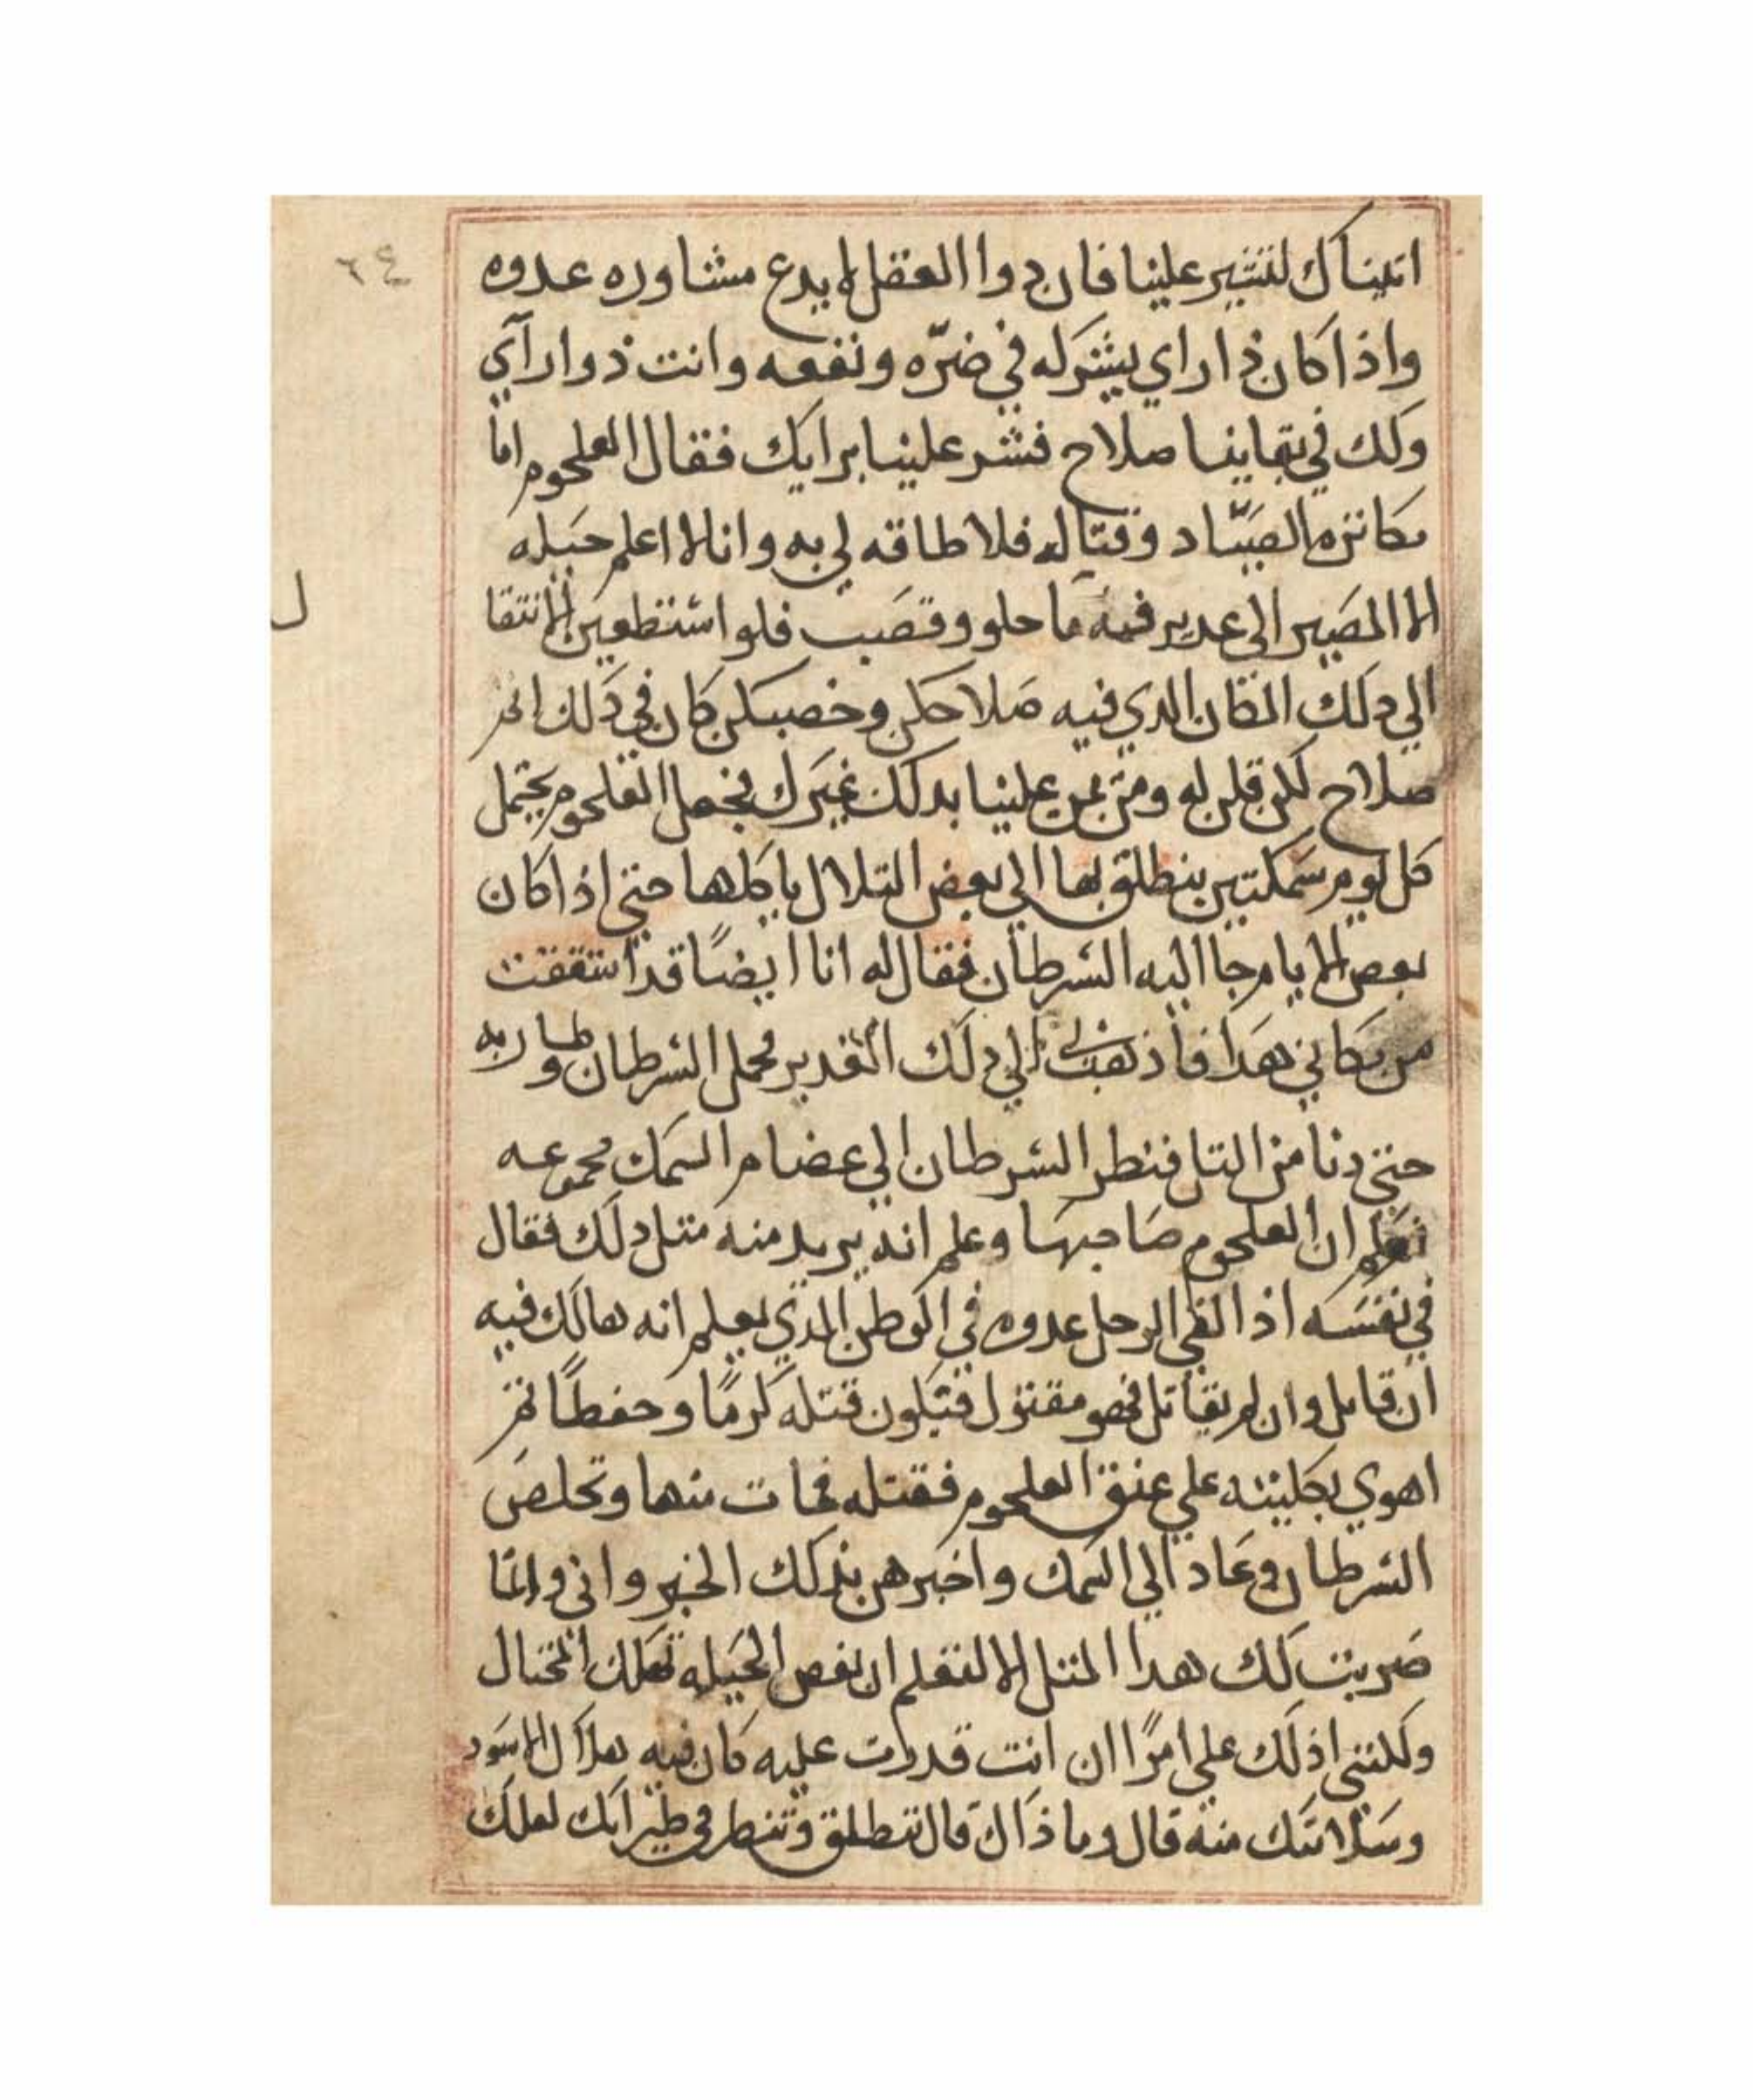 ٦٤
اتيناك لتشير علينا فان دوا العقل لا يدع مشاوره عدوه
واذا كان ذا راي يشركه في ضرّه ونفعه وانت ذوا رآي
ولك في بقاينا صلاح فشر علينا برايك فقال العلجوم اما
مكاثرة الصيّاد وقتاله فلا طاقه لي به وانا لا اعلم حيله
الا المصير الى غدير فيه ما حلو وقصب فلو استطعين الانتقا
ل
الي دلك المكان الدي فيه صلاحكن وخصبكن كان في دلك امر
صلاح لكن قلن له ومن يمن علينا بدلك غيرك فجعل العلجوم يحتمل
كل يوم سمكتين ينطلق بها الي بعض التلال ياكلها حتي اذا كان
بعض الايام جا اليه السرطان فقال له انا ايضًا قد اشفقت
من مكاني هدا فاذهب بي الي دلك الغدير فحمل السرطان وطار به
حتي دنا من التل فنظر السرطان الي عضام السمك مجموعه
فعلم ان العلجوم صاحبها وعلم انه يريد منه متل دلك فقال
في نفسه اذا لقي الرجل عدوه في الموطن الدي يعلم انه هالك فيه
ان قاتل وان لم يقاتل فهو مقتول فتكون قتله كرمًا وحفظًا ثم
اهوي بكلبيته علي عنق العلجوم فقتله فمات منها وتخلص
السرطان وعاد الي السمك واخبرهن بدلك الخبر واني وانما
ضربت لك هدا المتل الا لتعلم ان بعض الحيله تهلك المحتال
ولكنني ادلك علي امرًا ان انت قدرت عليه كان فيه هلاك الاسود
وسلامتك منه قال وما ذاك قال تنطلق وتنظر في طيرانك لعلك